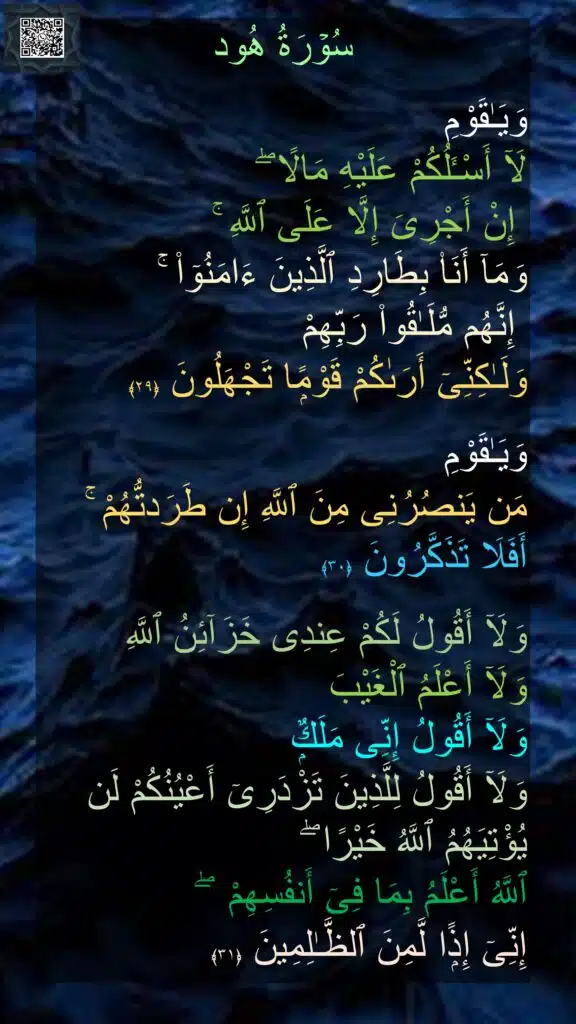 سُوۡرَةُ هُود
وَيَـٰقَوْمِ
لَآ أَسْـَٔلُكُمْ عَلَيْهِ مَالًا ۖ
إِنْ أَجْرِىَ إِلَّا عَلَى ٱللَّهِ ۚ
وَمَآ أَنَا۠ بِطَارِدِ ٱلَّذِينَ ءَامَنُوٓا۟ ۚ
إِنَّهُم مُّلَـٰقُوا۟ رَبِّهِمْ
وَلَـٰكِنِّىٓ أَرَىٰكُمْ قَوْمًۭا تَجْهَلُونَ ﴿٢٩﴾
وَيَـٰقَوْمِ
مَن يَنصُرُنِى مِنَ ٱللَّهِ إِن طَرَدتُّهُمْ ۚ
أَفَلَا تَذَكَّرُونَ ﴿٣٠﴾
وَلَآ أَقُولُ لَكُمْ عِندِى خَزَآئِنُ ٱللَّهِ
وَلَآ أَعْلَمُ ٱلْغَيْبَ
وَلَآ أَقُولُ إِنِّى مَلَكٌۭ
وَلَآ أَقُولُ لِلَّذِينَ تَزْدَرِىٓ أَعْيُنُكُمْ لَن
يُؤْتِيَهُمُ ٱللَّهُ خَيْرًا ۖ
ٱللَّهُ أَعْلَمُ بِمَا فِىٓ أَنفُسِهِمْ ۖ
إِنِّىٓ إِذًۭا لَّمِنَ ٱلظَّـٰلِمِينَ ﴿٣١﴾